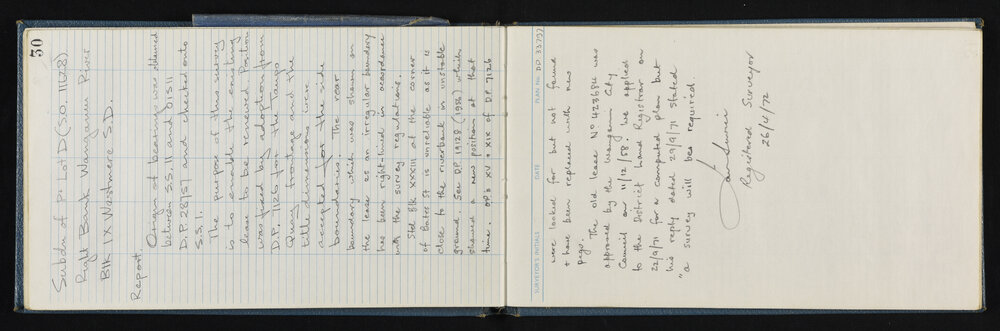 50
Subdn of Pt Lot D (S.O. 11628)
Right Bank Wanganui River
Blk IX Westmere S.D.
Report
Origin of bearings was obtained
between S.S. 11 and O IS 11
D.P. 28157 and checked onto
S.S. 1.
The purpose of this survey
is to enable the existing
lease to be renewed. Position
was fixed by adoption from
D.P. 7126 for the Taupo
Quay frontage and the
title dimensions were
accepted for the side
boundaries. The rear
boundary which was shown on
the lease as an irregular boundary
has been right-lined in accordance
with the survey regulations.
Std Blk XXXIII at the corner
of Bates St is unreliable as it is
close to the riverbank on unstable
ground. See D.P. 19128 (1956) which
showed a new position at that
time. OP's XV & XIX of D.P. 7126
SURVEYOR'S INITIALS DATE PLAN NO. D.P. 33797
were looked for but not found
& have been replaced with new
pegs.
The old lease No 423686 was
approved by the Wanganui City
Council on 11/12/58. We applied
to the District Land Registrar on
22/9/71 for a computed plan but
his reply dated 29/9/71 stated
"a survey will be required.
Registered Surveyor
26/4/72